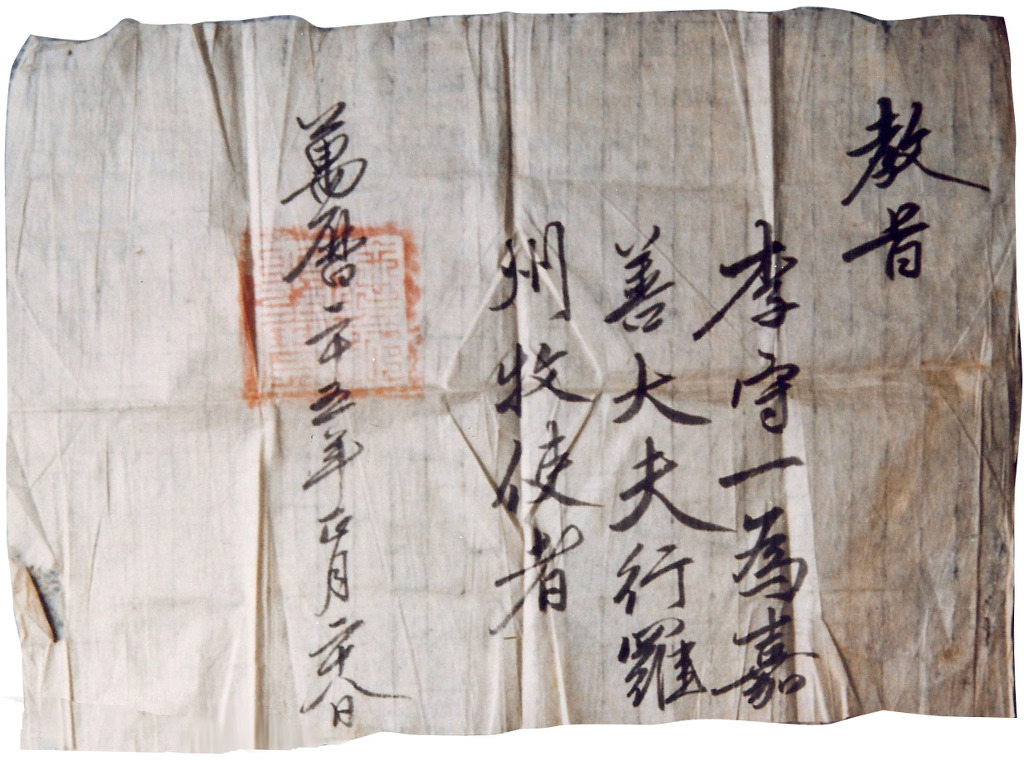 教旨
李守一為嘉
善大夫行羅
州牧使者
萬曆二十五年正月二十八日